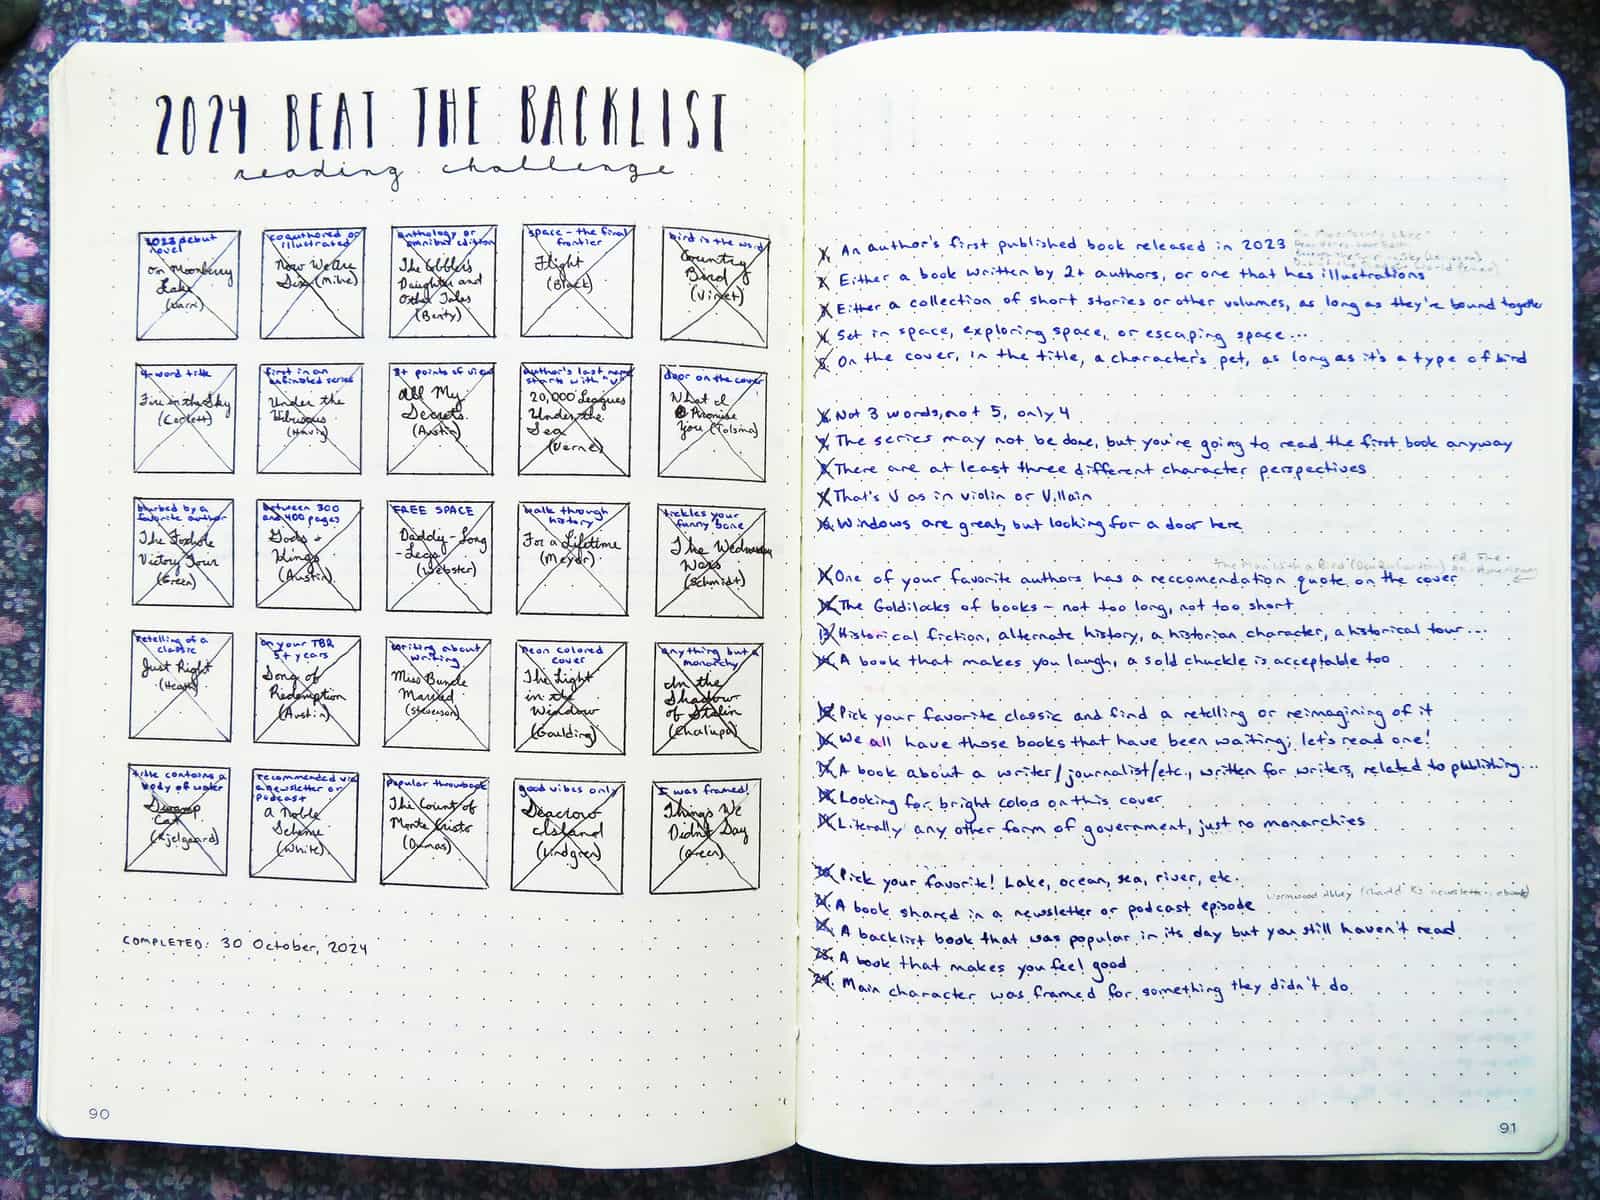 2024 BEAT THE BACKLIST
reading challenge
2023 debut
novel
On Moonberry
Lake
coauthored or
illustrated
Now We Are
Six (Milne)
anthology or
omnibus edition
The Gobbler's
Daughter and
Other Tales
space - the final
frontier
Flight
(Black)
bird is the word
Country
Bird
4-word title
Fire in the Sky
(Corlett)
first in an
unfinished series
Under the
Hibiscus
(Havig)
3+ points of view
All My
Secrets
(Austin)
author's last name
starts with "V"
20,000 Leagues
Under the
Sea
(Verne)
door on the cover
What I
Promise
You (Tolsma)
blurbed by a
favorite author
The Foxhole
Victory Tour
(Green)
between 300
and 400 pages
Gods &
Kings
(Austin)
FREE SPACE
Daddy-Long
-Legs
(Webster)
walk through
history
For a Lifetime
(Meyer)
tickles your
funny bone
The Wednesday
Wars
(Schmidt)
retelling of a
classic
Just Right
(Heath)
on your TBR
5+ years
Song of
Redemption
(Austin)
writing about
writing
Miss Buncle
Married
(Stevenson)
neon colored
cover
The Light
in the
Window
(Goulding)
anything but a
monarchy
In the
Shadow
of Stalin
(Chalupa)
title contains a
body of water
Swamp
Cat
(Kjelgaard)
recommended via
a newsletter or
podcast
A Noble
Scheme
(White)
popular throwback
The Count of
Monte Cristo
(Dumas)
good vibes only
Seacrow
Island
(Lindgren)
I was framed!
Things We
Didn't Say
(Green)
COMPLETED: 30 October, 2024
90
1. An author's first published book released in 2023
On Moonberry Lake
2. Either a book written by 2+ authors, or one that has illustrations
3. Either a collection of short stories or other volumes, as long as they're bound together
4. Set in space, exploring space, or escaping space...
5. On the cover, in the title, a character's pet, as long as it's a type of bird
6. Not 3 words, not 5, only 4
7. The series may not be done, but you're going to read the first book anyway
8. There are at least three different character perspectives
9. That's V as in violin or Villain
10. Windows are great, but looking for a door here
11. One of your favorite authors has a reccomendation quote on the cover
12. The Goldilocks of books - not too long, not too short
13. Historical fiction, alternate history, a historian character, a historical tour...
14. A book that makes you laugh, a solid chuckle is acceptable too
15. Pick your favorite classic and find a retelling or reimagining of it
16. We all have those books that have been waiting; let's read one!
17. A book about a writer/journalist/etc., written for writers, related to publishing...
18. Looking for bright colors on this cover
19. Literally any other form of government, just no monarchies
20. Pick your favorite! Lake, ocean, sea, river, etc.
21. A book shared in a newsletter or podcast episode
Wormwood Abbey
22. A backlist book that was popular in its day but you still haven't read
23. A book that makes you feel good
24. Main character was framed for something they didn't do
91